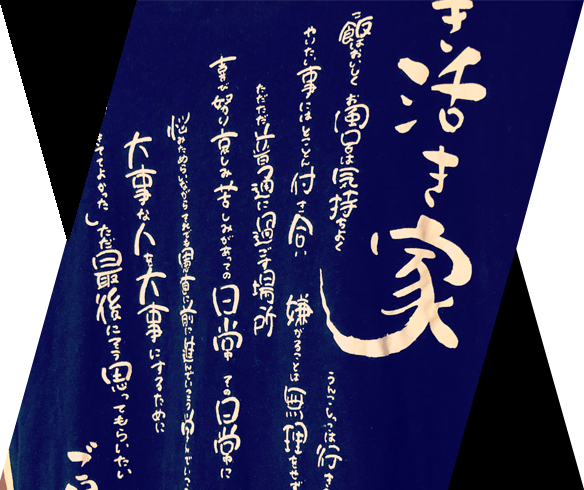 き活き家
うんこしっこは行き
飯はおいしく お風呂は気持ちよく
やりたい事にはとことん付き合い 嫌がることは無理をせず
ただただ普通に過ごす場所
喜び怒り哀しみ苦しみがあっての日常 その日常に
悩みためらいながら それでも
大事な人を大事にするために
きててよかった ただ最後にそう思ってもらいたい